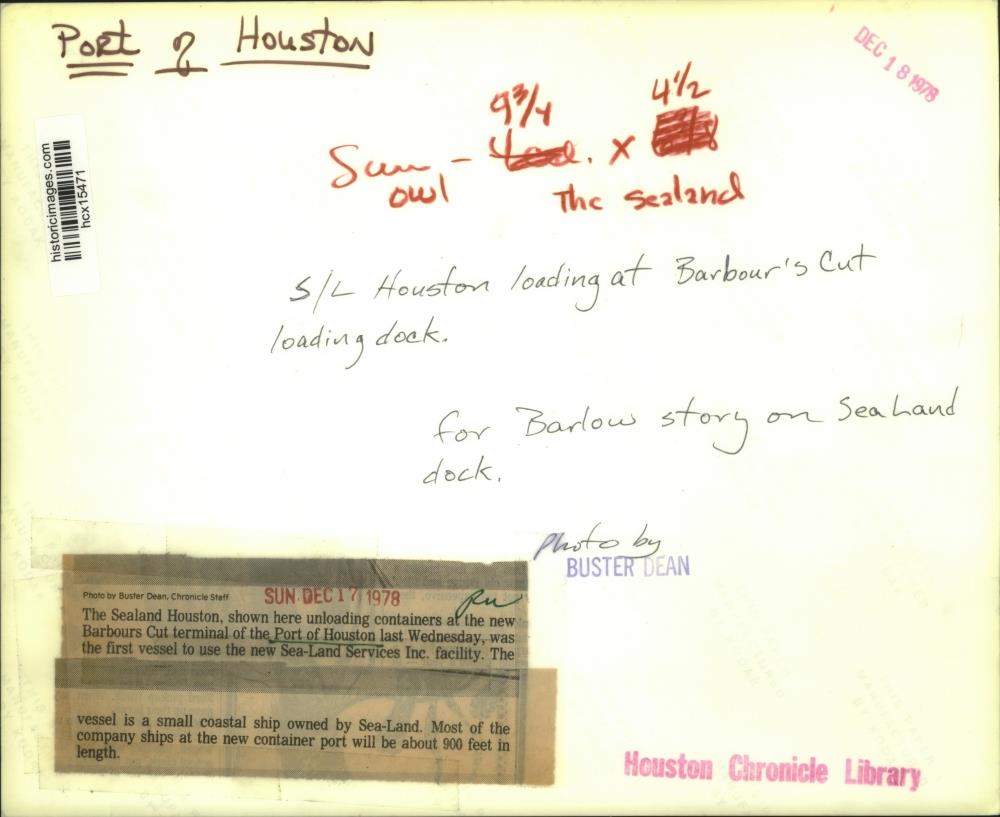 Port of Houston
DEC 18 1978
9 3/4
4 1/2
Sun - x
owl
The sealand
historicimages.com
hcx15471
S/L Houston loading at Barbour's Cut
loading dock.
for Barlow story on SeaLand
dock.
Photo by
BUSTER DEAN
Photo by Buster Dean, Chronicle Staff
SUN. DEC 17 1978
The Sealand Houston, shown here unloading containers at the new
Barbours Cut terminal of the Port of Houston last Wednesday, was
the first vessel to use the new Sea-Land Services Inc. facility. The
vessel is a small coastal ship owned by Sea-Land. Most of the
company ships at the new container port will be about 900 feet in
length.
Houston Chronicle Library